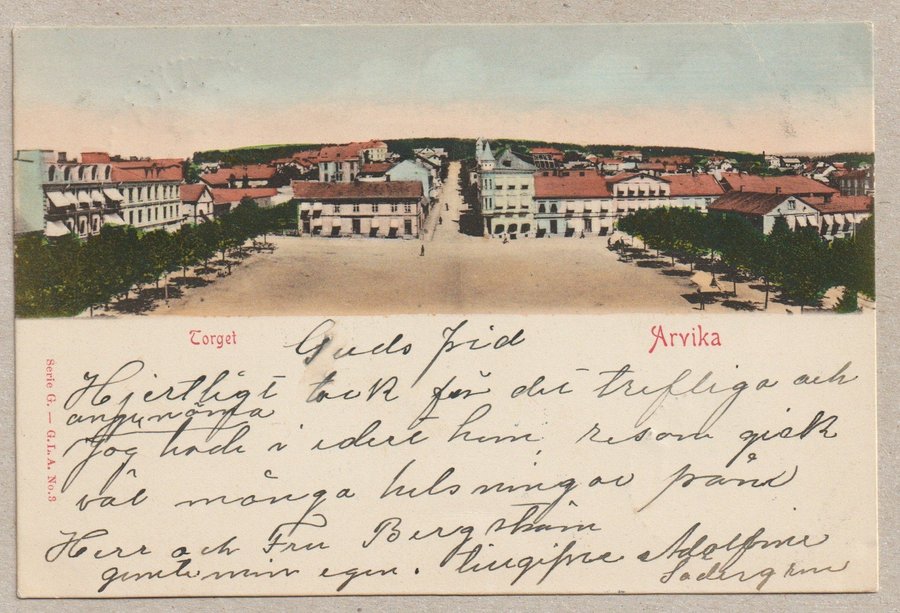 Torget
Arvika
Serie G. — G.L.A. No.3
Guds frid
Hjertligt tack för det trefliga och
angenäma
Jag hade i edert hem, resan gick
väl många helsningar från
Herr och Fru Bergström
min egen. Adolfine
Södergren